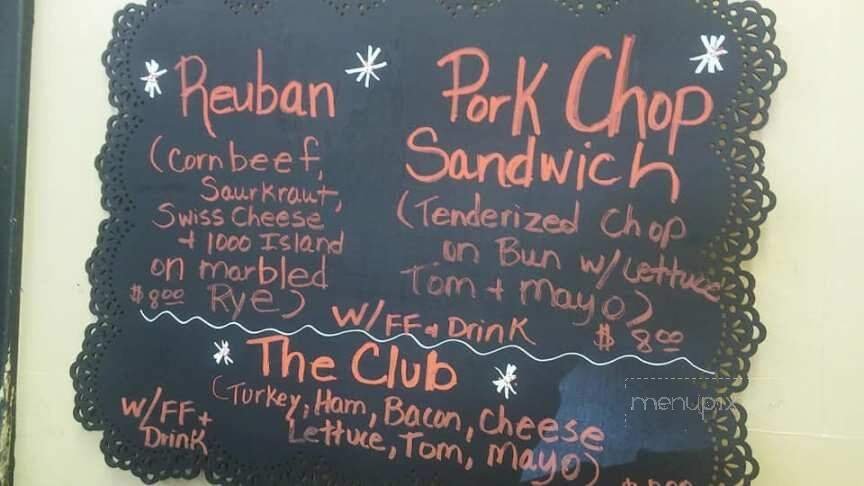 Reuban
(Cornbeef,
Saurkraut,
Swiss Cheese
+ 1000 Island
on marbled
Rye)
$8.00
Pork Chop
Sandwich
(Tenderized Chop
on Bun w/Lettuce
Tom + Mayo)
$8.00
W/FF + Drink
The Club
(Turkey, Ham, Bacon, Cheese
Lettuce, Tom, Mayo)
W/FF +
Drink
menupix